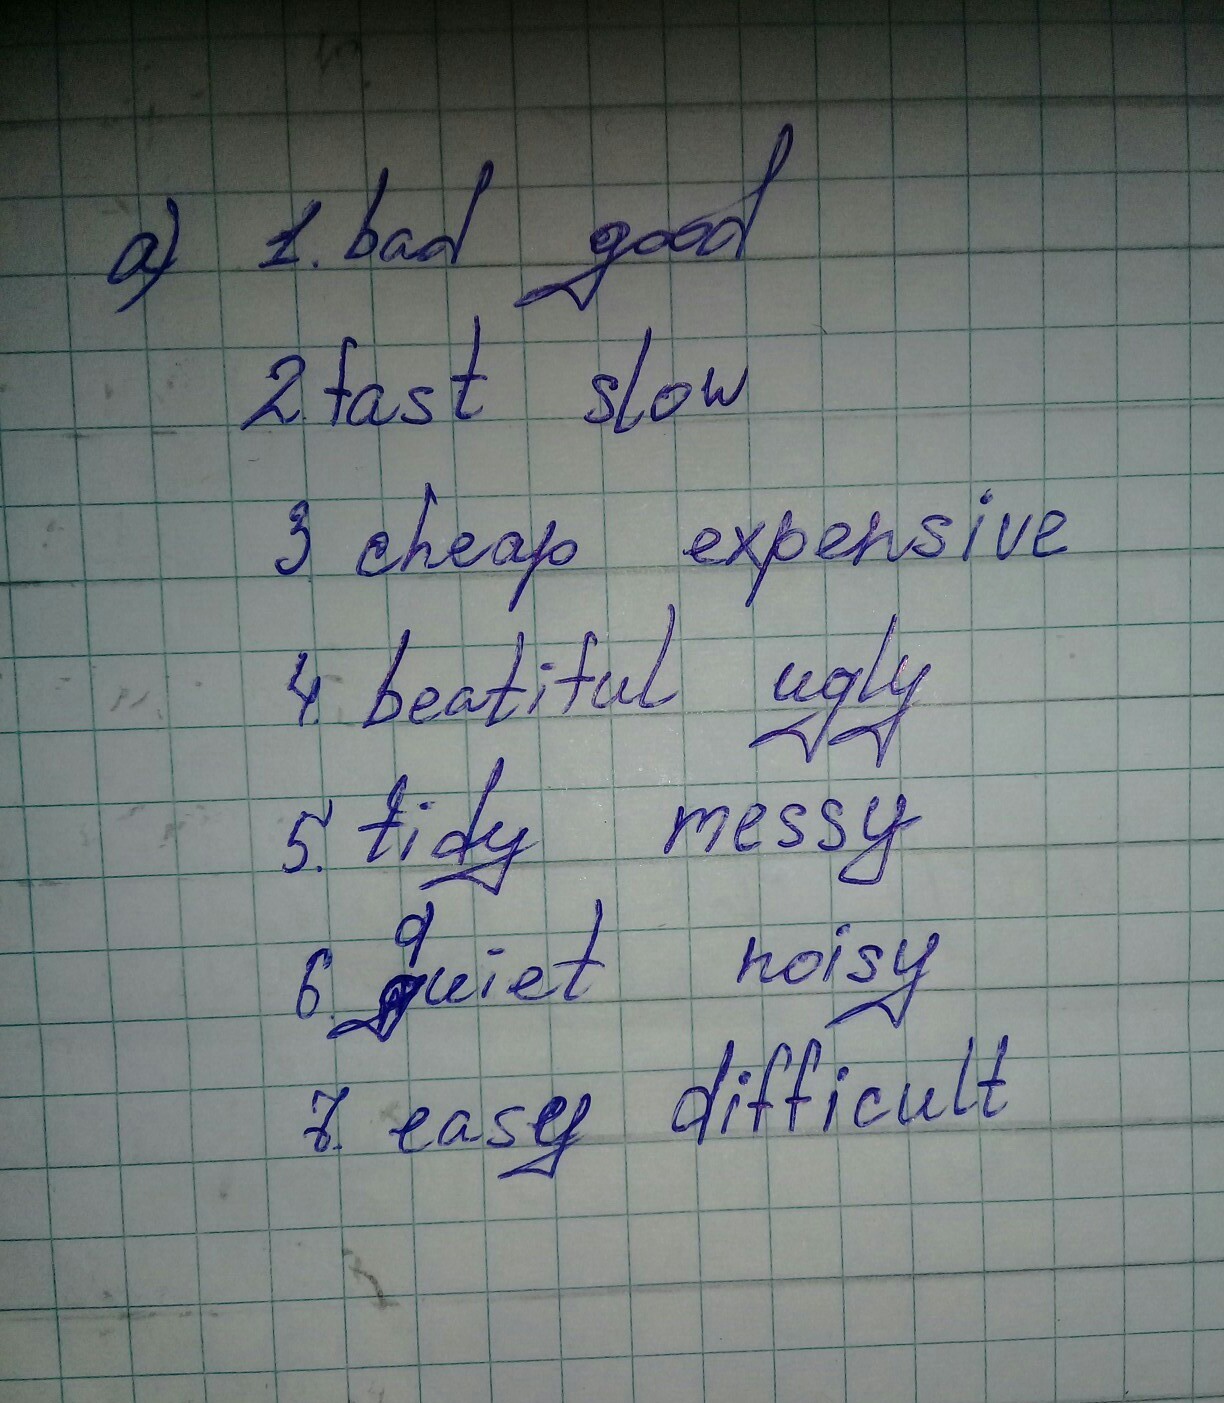 a) 1. bad good
2 fast slow
3 cheap expensive
4. beatiful ugly
5. tidy messy
q
6. quiet noisy
7. easy difficult